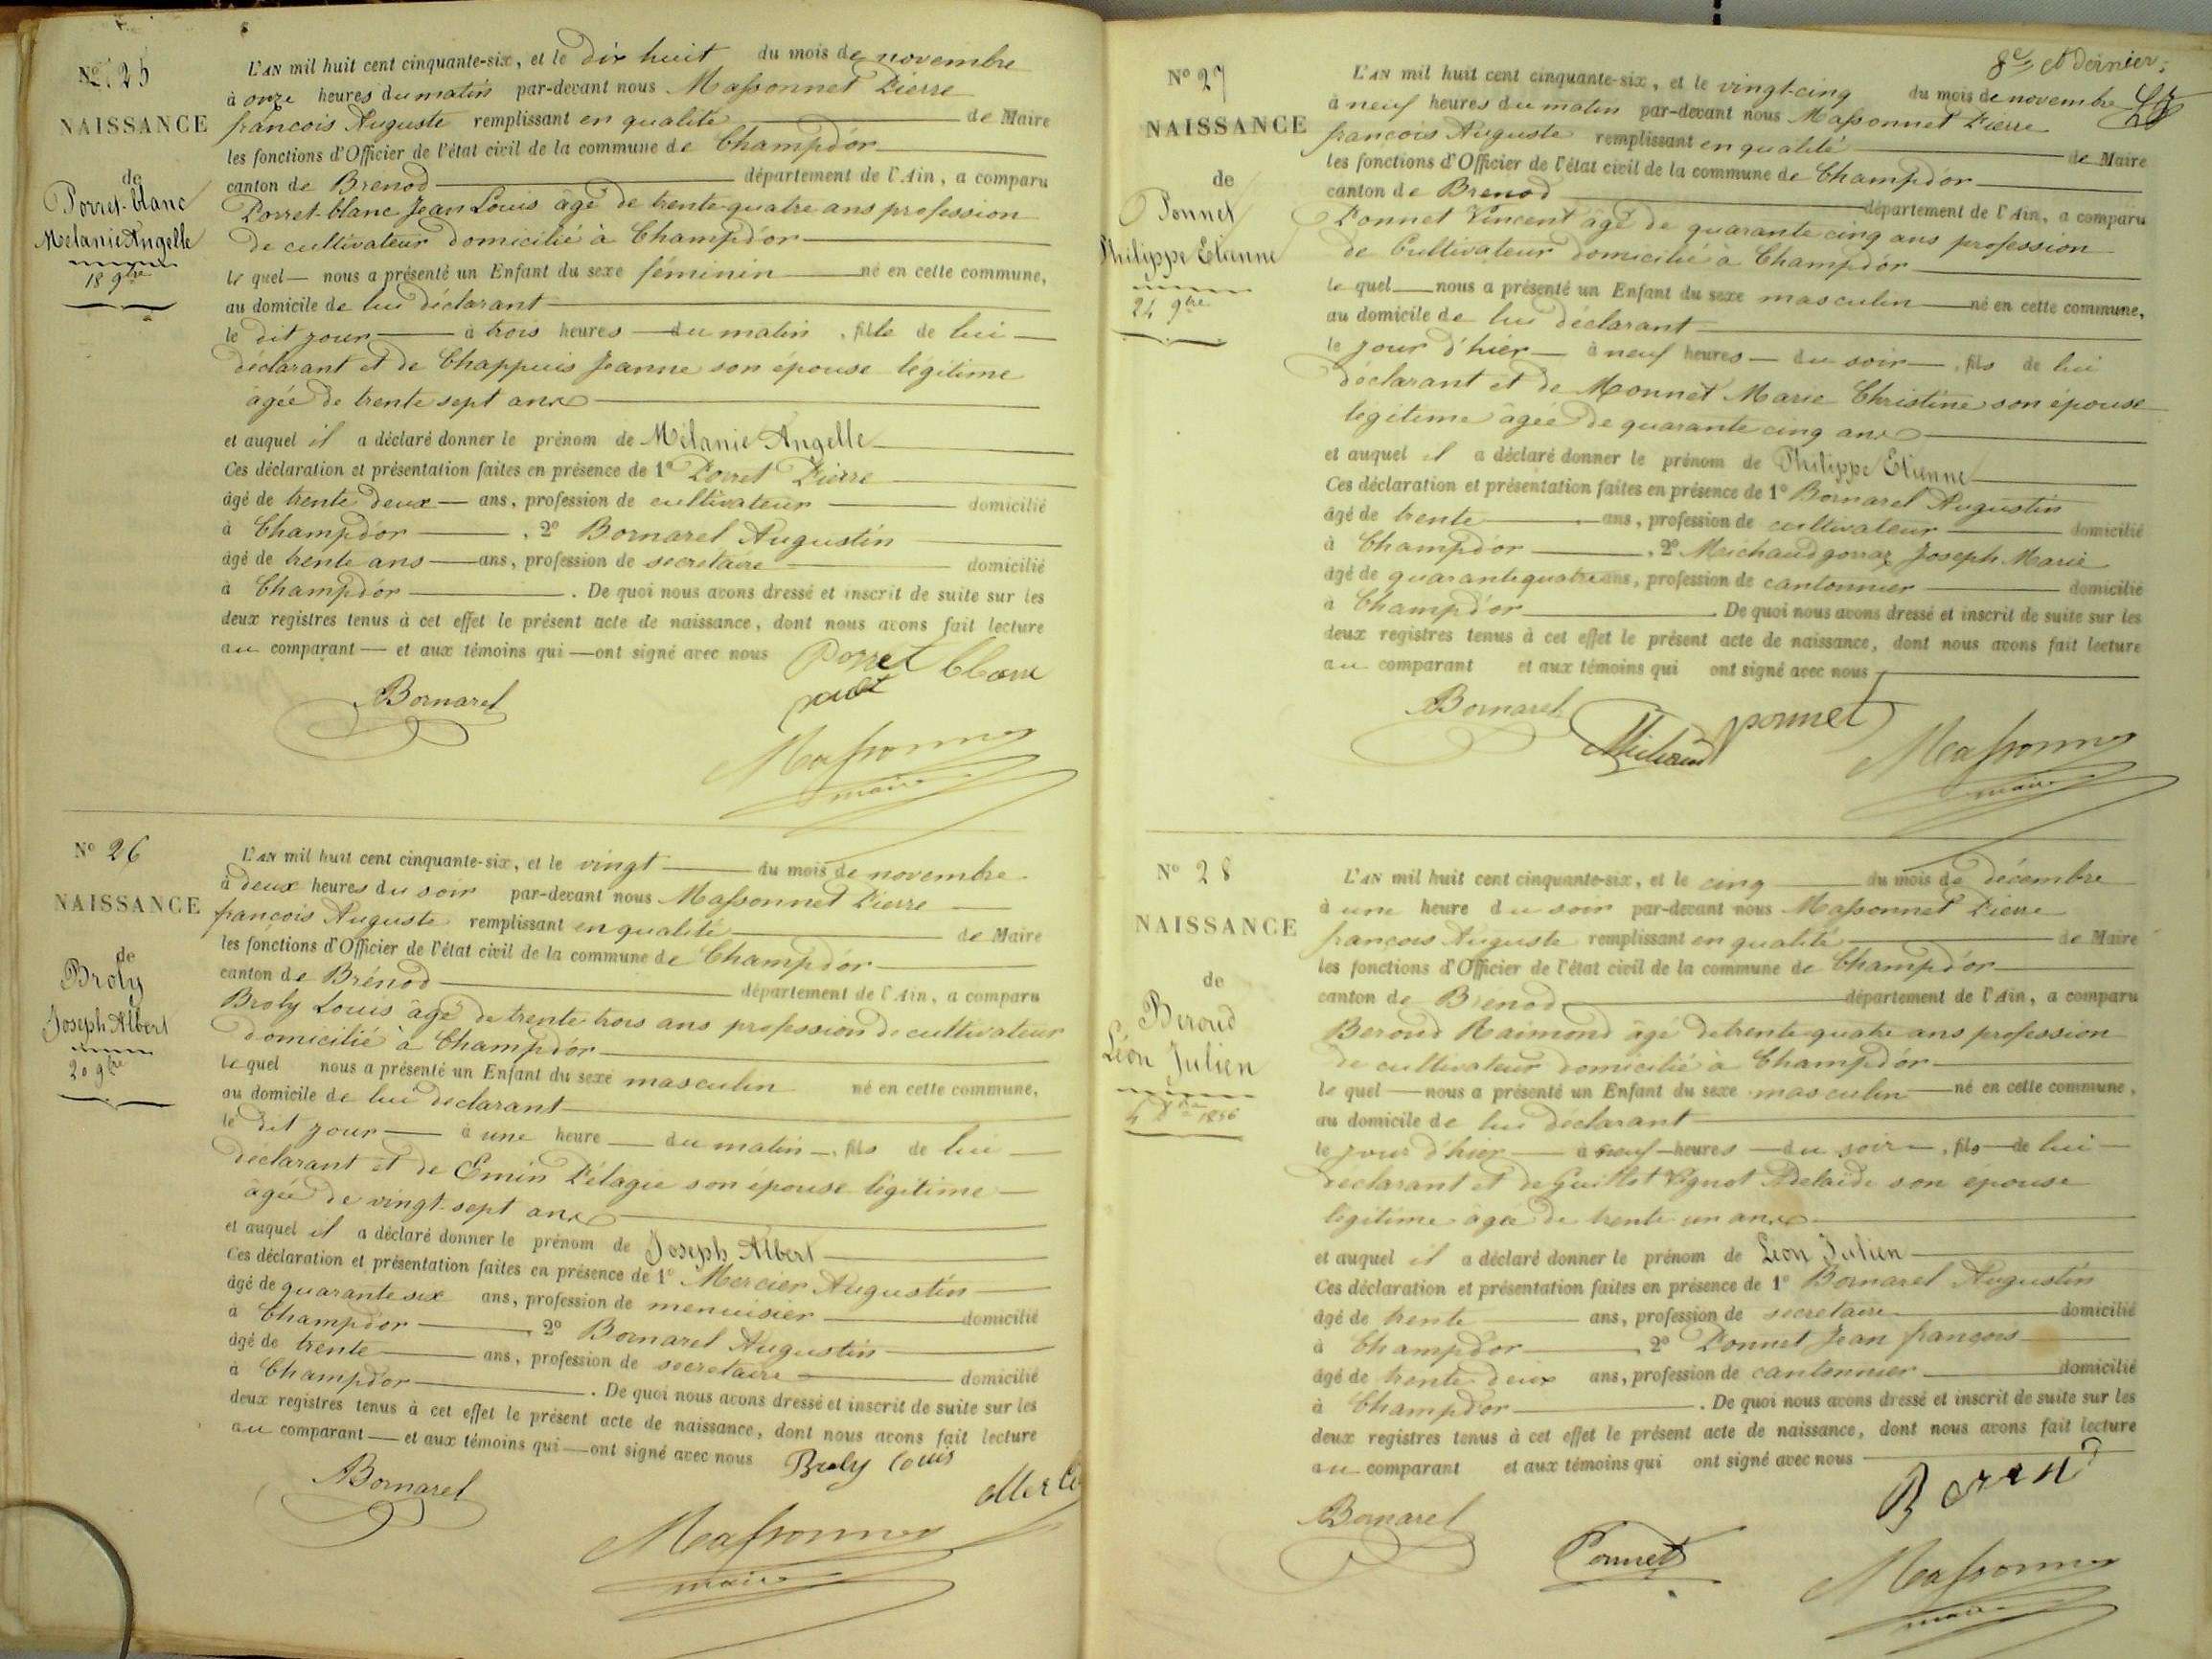 Nº 25
NAISSANCE
de
Porret-blanc
Mélanie Angelle
18 9bre
L'AN mil huit cent cinquante-six, et le dix huit du mois de novembre
à onze heures du matin par-devant nous Massonnet Pierre
françois Auguste remplissant en qualité de Maire
les fonctions d'Officier de l'état civil de la commune de Champdor
canton de Brenod département de l'Ain, a comparu
Porret-blanc Jean Louis âgé de trente-quatre ans profession
de cultivateur domicilié à Champdor
le quel nous a présenté un Enfant du sexe féminin né en cette commune,
au domicile de lui déclarant
le dit jour à trois heures du matin, fille de lui
déclarant et de Chappuis Jeanne son épouse légitime
âgée de trente sept ans
et auquel il a déclaré donner le prénom de Mélanie Angelle
Ces déclaration et présentation faites en présence de 1º Porret Pierre
âgé de trente deux ans, profession de cultivateur domicilié
à Champdor, 2º Bornarel Augustin
âgé de trente ans ans, profession de secrétaire domicilié
à Champdor. De quoi nous avons dressé et inscrit de suite sur les
deux registres tenus à cet effet le présent acte de naissance, dont nous avons fait lecture
au comparant et aux témoins qui ont signé avec nous Porret blanc
Bornarel
Massonnet
maire
Nº 26
NAISSANCE
de
Broly
Joseph Albert
20 9bre
L'AN mil huit cent cinquante-six, et le vingt du mois de novembre
à deux heures du soir par-devant nous Massonnet Pierre
françois Auguste remplissant en qualité de Maire
les fonctions d'Officier de l'état civil de la commune de Champdor
canton de Brénod département de l'Ain, a comparu
Broly Louis âgé de trente trois ans profession de cultivateur
domicilié à Champdor
le quel nous a présenté un Enfant du sexe masculin né en cette commune,
au domicile de lui déclarant
le dit jour à une heure du matin, fils de lui
déclarant et de Emin Pélagie son épouse légitime
âgée de vingt-sept ans
et auquel il a déclaré donner le prénom de Joseph Albert
Ces déclaration et présentation faites en présence de 1º Mercier Augustin
âgé de quarante six ans, profession de menuisier domicilié
à Champdor 2º Bornarel Augustin
âgé de trente ans, profession de secretaire domicilié
à Champdor. De quoi nous avons dressé et inscrit de suite sur les
deux registres tenus à cet effet le présent acte de naissance, dont nous avons fait lecture
au comparant et aux témoins qui ont signé avec nous Broly Louis
Bornarel
Massonnet
maire
8e et dernier
Nº 27
NAISSANCE
de
Ponnet
Philippe Etienne
24 9bre
L'AN mil huit cent cinquante-six, et le vingt-cinq du mois de novembre
à neuf heures du matin par-devant nous Massonnet Pierre
françois Auguste remplissant en qualité de Maire
les fonctions d'Officier de l'état civil de la commune de Champdor
canton de Brenod département de l'Ain, a comparu
Ponnet Vincent âgé de quarante cinq ans profession
de Cultivateur domicilié à Champdor
le quel nous a présenté un Enfant du sexe masculin né en cette commune,
au domicile de lui déclarant
le jour d'hier à neuf heures du soir, fils de lui
déclarant et de Monnet Marie Christine son épouse
légitime âgée de quarante cinq ans
et auquel il a déclaré donner le prénom de Philippe Etienne
Ces déclaration et présentation faites en présence de 1º Bornarel Augustin
âgé de trente ans, profession de cultivateur domicilié
à Champdor, 2º Michaud gorraz Joseph Marie
âgé de quarante quatre ans, profession de cantonnier domicilié
à Champdor. De quoi nous avons dressé et inscrit de suite sur les
deux registres tenus à cet effet le présent acte de naissance, dont nous avons fait lecture
au comparant et aux témoins qui ont signé avec nous
Bornarel Michaud ponnet
Massonnet
maire
Nº 28
NAISSANCE
de
Beroud
Léon Julien
4 Xbre 1856
L'AN mil huit cent cinquante-six, et le cinq du mois de décembre
à une heure du soir par-devant nous Massonnet Pierre
françois Auguste remplissant en qualité de Maire
les fonctions d'Officier de l'état civil de la commune de Champdor
canton de Brénod département de l'Ain, a comparu
Beroud Raimond âgé de trente-quatre ans profession
de cultivateur domicilié à Champdor
le quel nous a présenté un Enfant du sexe masculin né en cette commune,
au domicile de lui déclarant
le jour d'hier à neuf heures du soir, fils de lui
déclarant et de Guillot Vignot Adelaïde son épouse
légitime âgée de trente un ans
et auquel il a déclaré donner le prénom de Léon Julien
Ces déclaration et présentation faites en présence de 1º Bornarel Augustin
âgé de trente ans, profession de secretaire domicilié
à Champdor 2º Ponnet Jean françois
âgé de trente deux ans, profession de cantonnier domicilié
à Champdor. De quoi nous avons dressé et inscrit de suite sur les
deux registres tenus à cet effet le présent acte de naissance, dont nous avons fait lecture
au comparant et aux témoins qui ont signé avec nous
Beroud
Bornarel Ponnet
Massonnet
maire